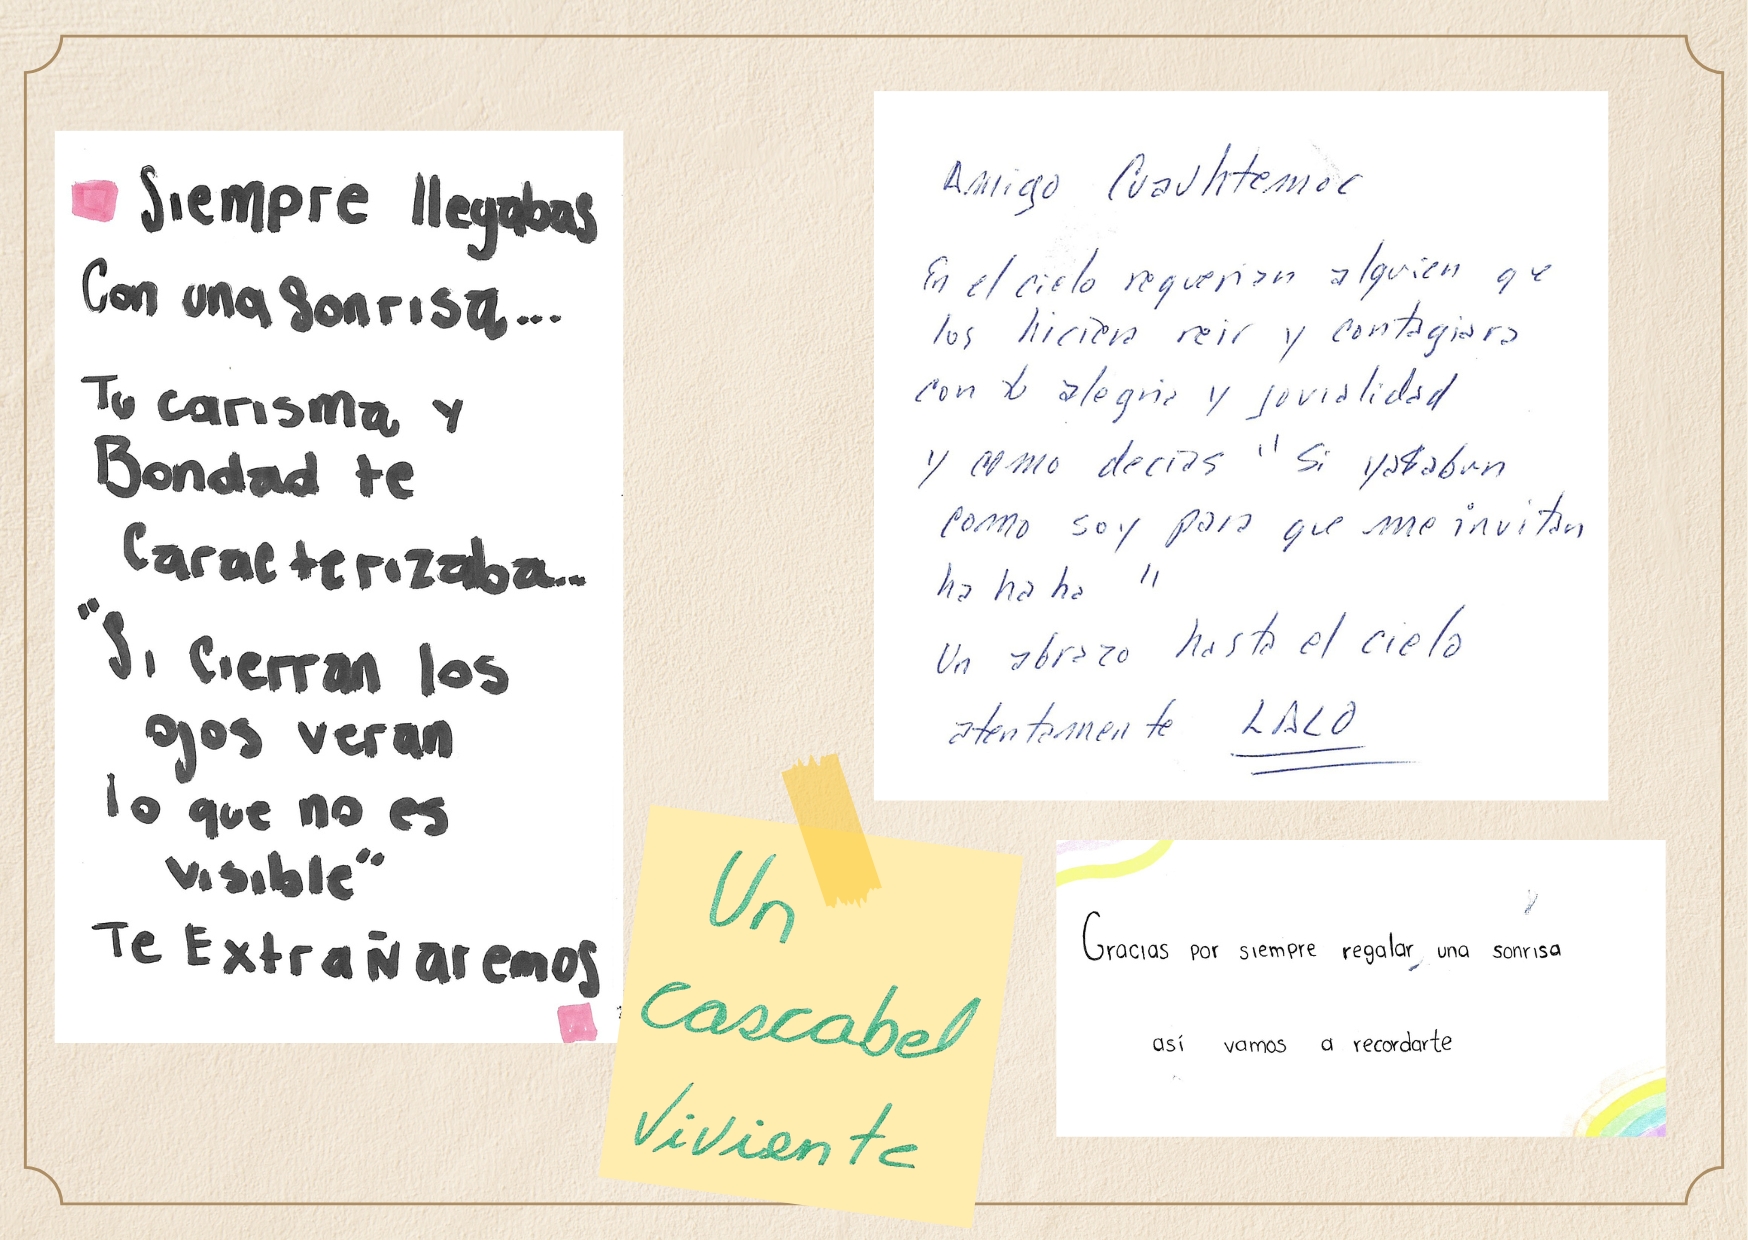 Siempre llegabas
Con una sonrisa...
Tu carisma y
Bondad te
Caracterizaba...
"Si cierran los
ojos veran
lo que no es
visible"
Te ExtrañAremos
Amigo Cuauhtemoc
En el cielo requerian alguien que
los hiciera reir y contagiara
con tu alegria y jovialidad
y como decias "Si
como soy para que me invitan
ha ha ha "
Un abrazo hasta el cielo
atentamente LALO
Un
cascabel
viviente
Gracias por siempre regalar una sonrisa
así vamos a recordarte